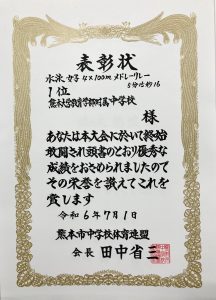 表彰状
水泳 女子 4×100m メドレーリレー
5分12秒16
1位
熊本大学教育学部附属中学校
様
あなたは本大会に於いて終始
敢闘され頭書のとおり優秀な
成績をおさめられましたので
その栄誉を讃えてこれを
賞します
令和6年7月1日
熊本市中学校体育連盟
会長 田中省三